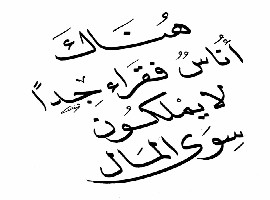 هُنَاكَ
أُنَاسٌ فُقَرَاء جِداً
لا يَمْلكُون
سِوَى المَال